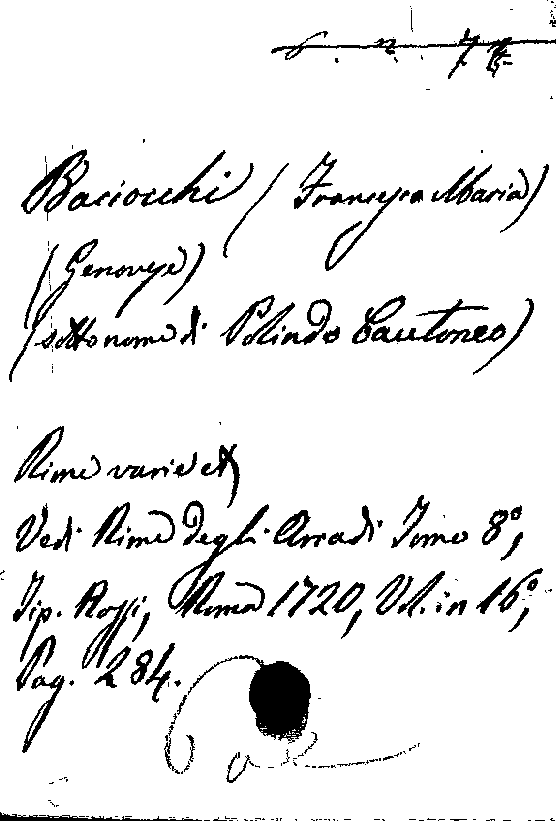 Baciocchi (Francesco Maria)
(Genovese)
(sotto nome di Polindo Cautoneo)
Rime varie etc
Vedi Rime degli Arcadi Tomo 8°,
Tip. Rossi, Roma 1720, Vol. in 16°,
Pag. 284.